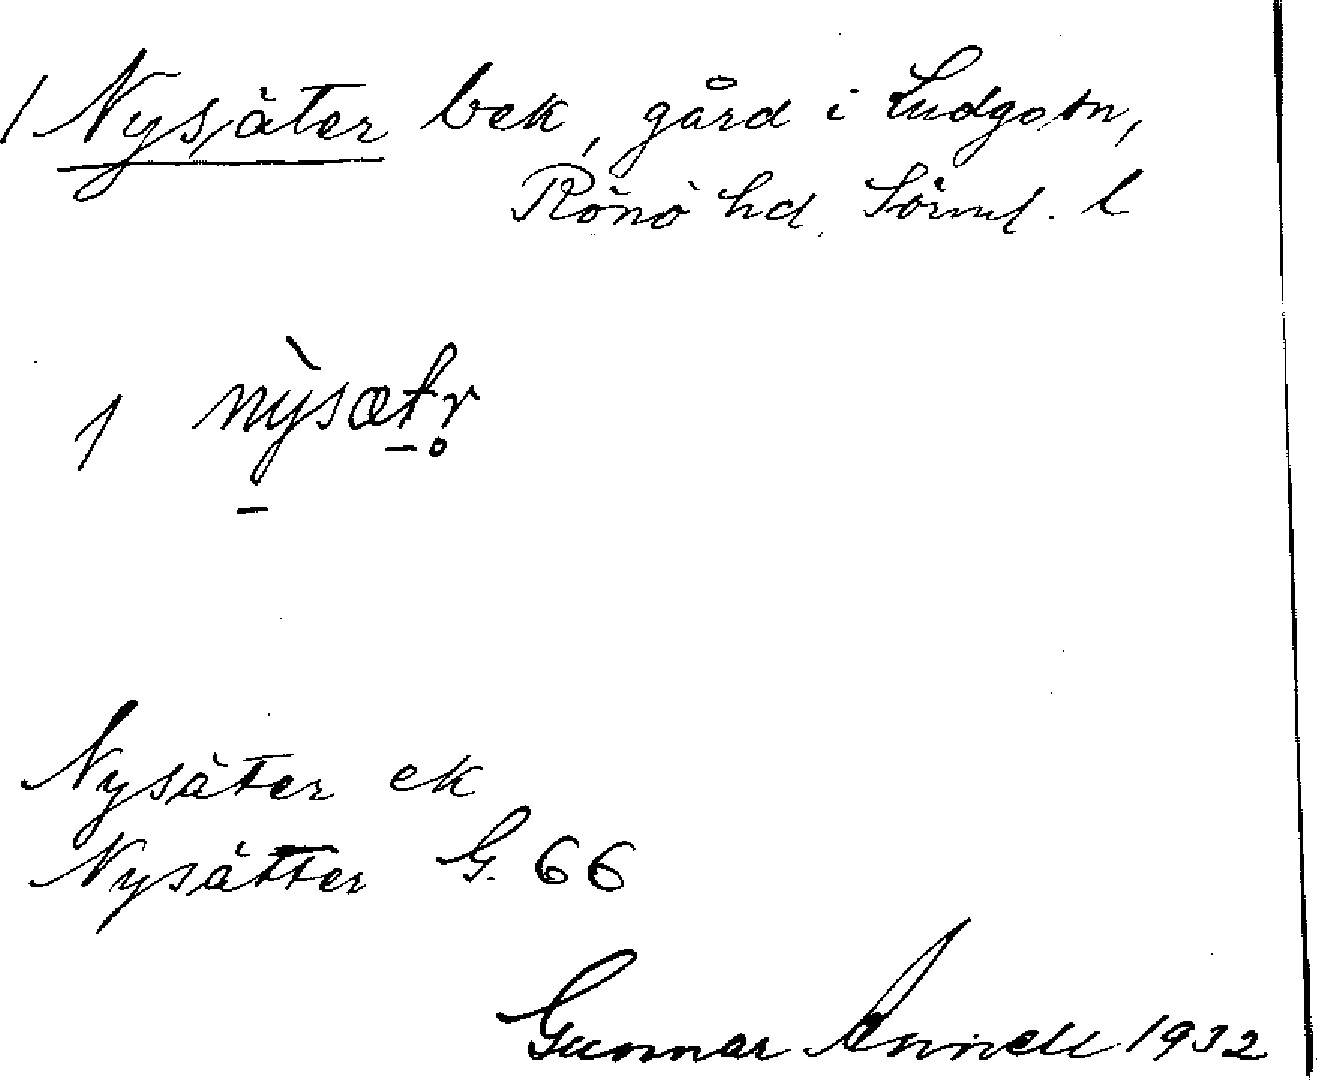 / Nysäter bek, gård i Ludgo sn,
Rönö hd. Söml. l
1 nỳsætr̥
Nysäter ek
Nysätter G. 66
Gunnar Annell 1932